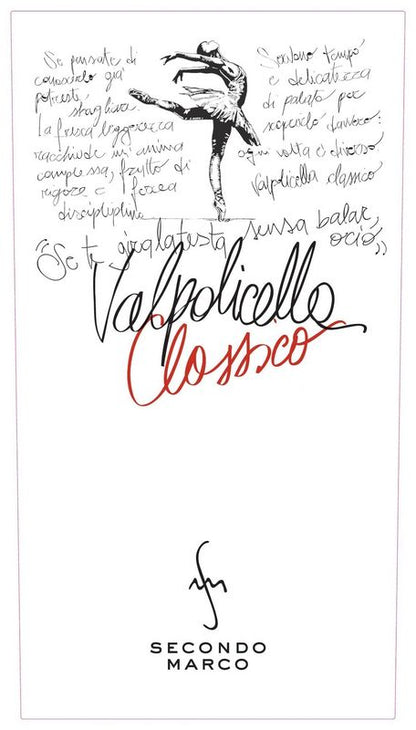 Se pensate di
conoscerlo già
potreste
sbagliare.
La fresca leggerezza
racchiude un'anima
complessa, frutto di
rigore e ferrea
Servono tempo
e delicatezza
di palato per
scoprirlo davvero:
ogni volta è diverso
Valpolicella classico
"Se te senza balar,
Valpolicella
Classico
SECONDO
MARCO